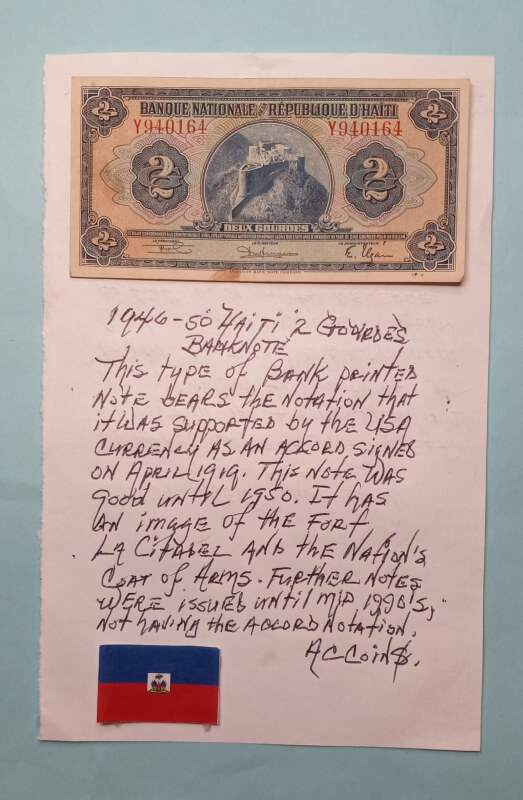 BANQUE NATIONALE DE LA RÉPUBLIQUE D'HAÏTI
Y940164 Y940164
2 2
2 2
DEUX GOURDES
2 2
AMERICAN BANK NOTE COMPANY
1946-50 HAITI 2 GOURDES
BANKNOTE
THIS TYPE OF BANK PRINTED
NOTE BEARS THE NOTATION THAT
IT WAS SUPPORTED BY THE USA
CURRENCY AS AN ACCORD SIGNED
ON APRIL 1919. THIS NOTE WAS
GOOD UNTIL 1950. IT HAS
AN IMAGE OF THE FORT
LA CITADEL AND THE NATION'S
COAT OF ARMS. FURTHER NOTES
WERE ISSUED UNTIL MID 1990'S,
NOT HAVING THE ACCORD NOTATION.
ACCOIN$.